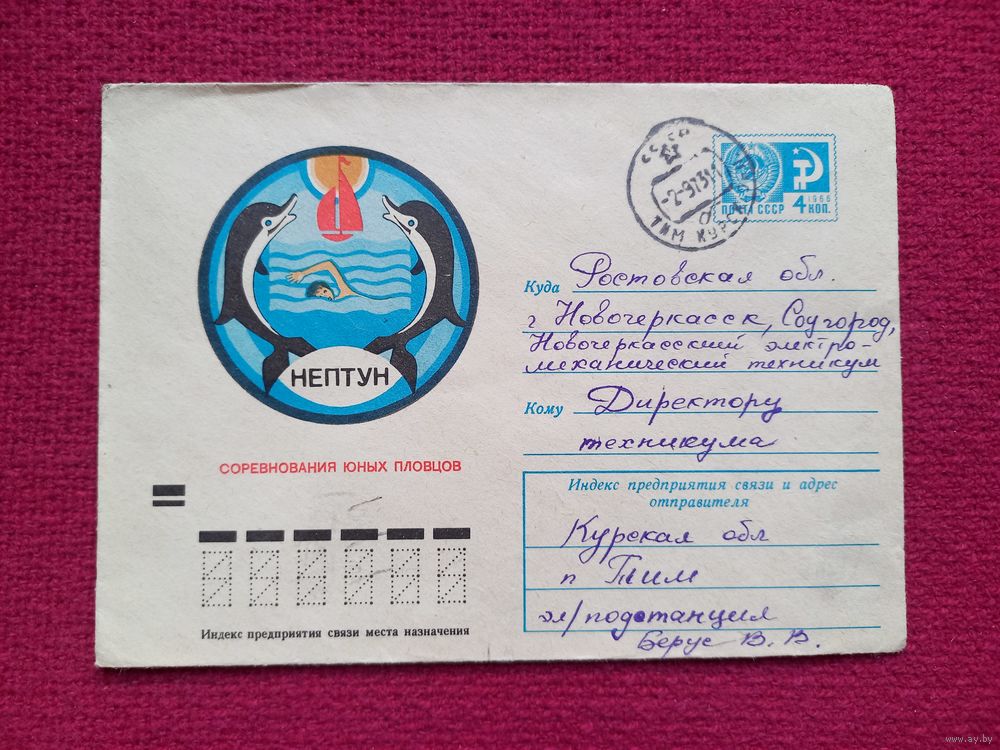 НЕПТУН
СОРЕВНОВАНИЯ ЮНЫХ ПЛОВЦОВ
Индекс предприятия связи места назначения
СССР
-2-973
ТИМ КУРСК
ПОЧТА СССР
1966
4 КОП.
Куда Ростовская обл.
г Новочеркасск, Соцгород,
Новочеркасский электро-
механический техникум
Кому Директору
техникума
Индекс предприятия связи и адрес
отправителя
Курская обл
п Тим
эл/подстанция
Берус В. В.
www.ay.by